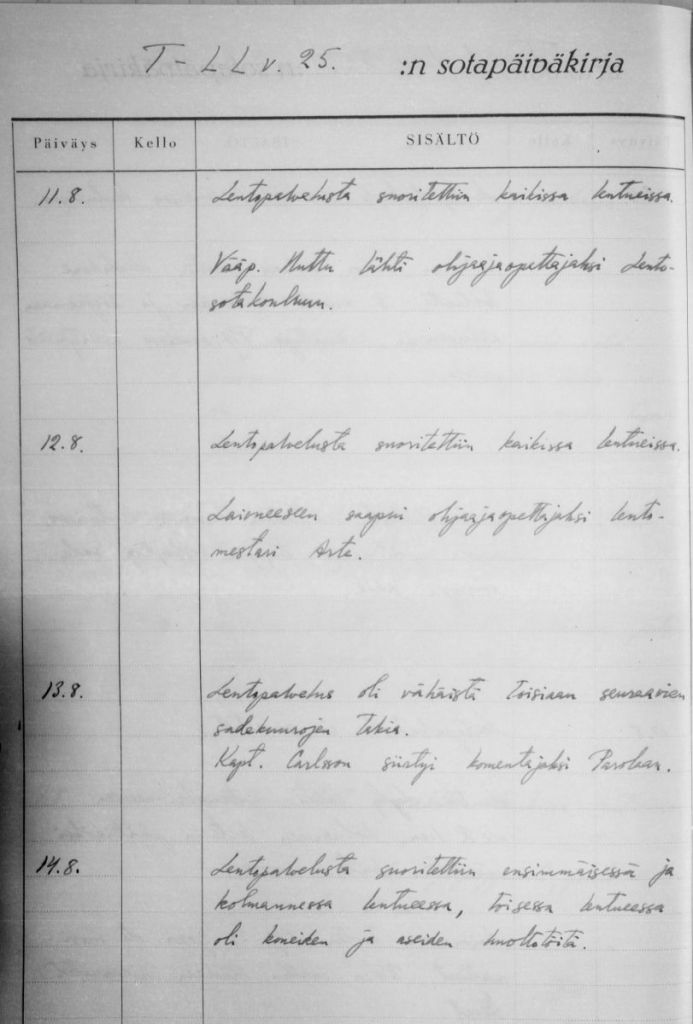 T-LLv. 25. :n sotapäiväkirja
Päiväys Kello SISÄLTÖ
11.8. Lentopalvelusta suoritettiin kaikissa lentueissa.
Vääp. Huttu lähti ohjaajaopettajaksi Lento-
sotakouluun.
12.8. Lentopalvelusta suoritettiin kaikissa lentueissa.
Laivueeseen saapui ohjaajaopettajaksi lento-
mestari Arte.
13.8. Lentopalvelus oli vähäistä toisiaan seuraavien
sadekuurojen takia.
Kapt. Carlsson siirtyi komentajaksi Parolaan.
14.8. Lentopalvelusta suoritettiin ensimmäisessä ja
kolmannessa lentueessa, toisessa lentueessa
oli koneiden ja aseiden huoltotöitä.